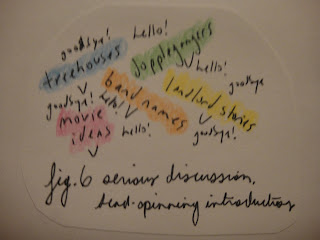 goodbye! hello!
treehouses dopplegangers
hello!
goodbye
goodbye! hello! band names landlord stories
movie ideas hello! goodbye!
fig. 6 serious discussion.
head-spinning introduction